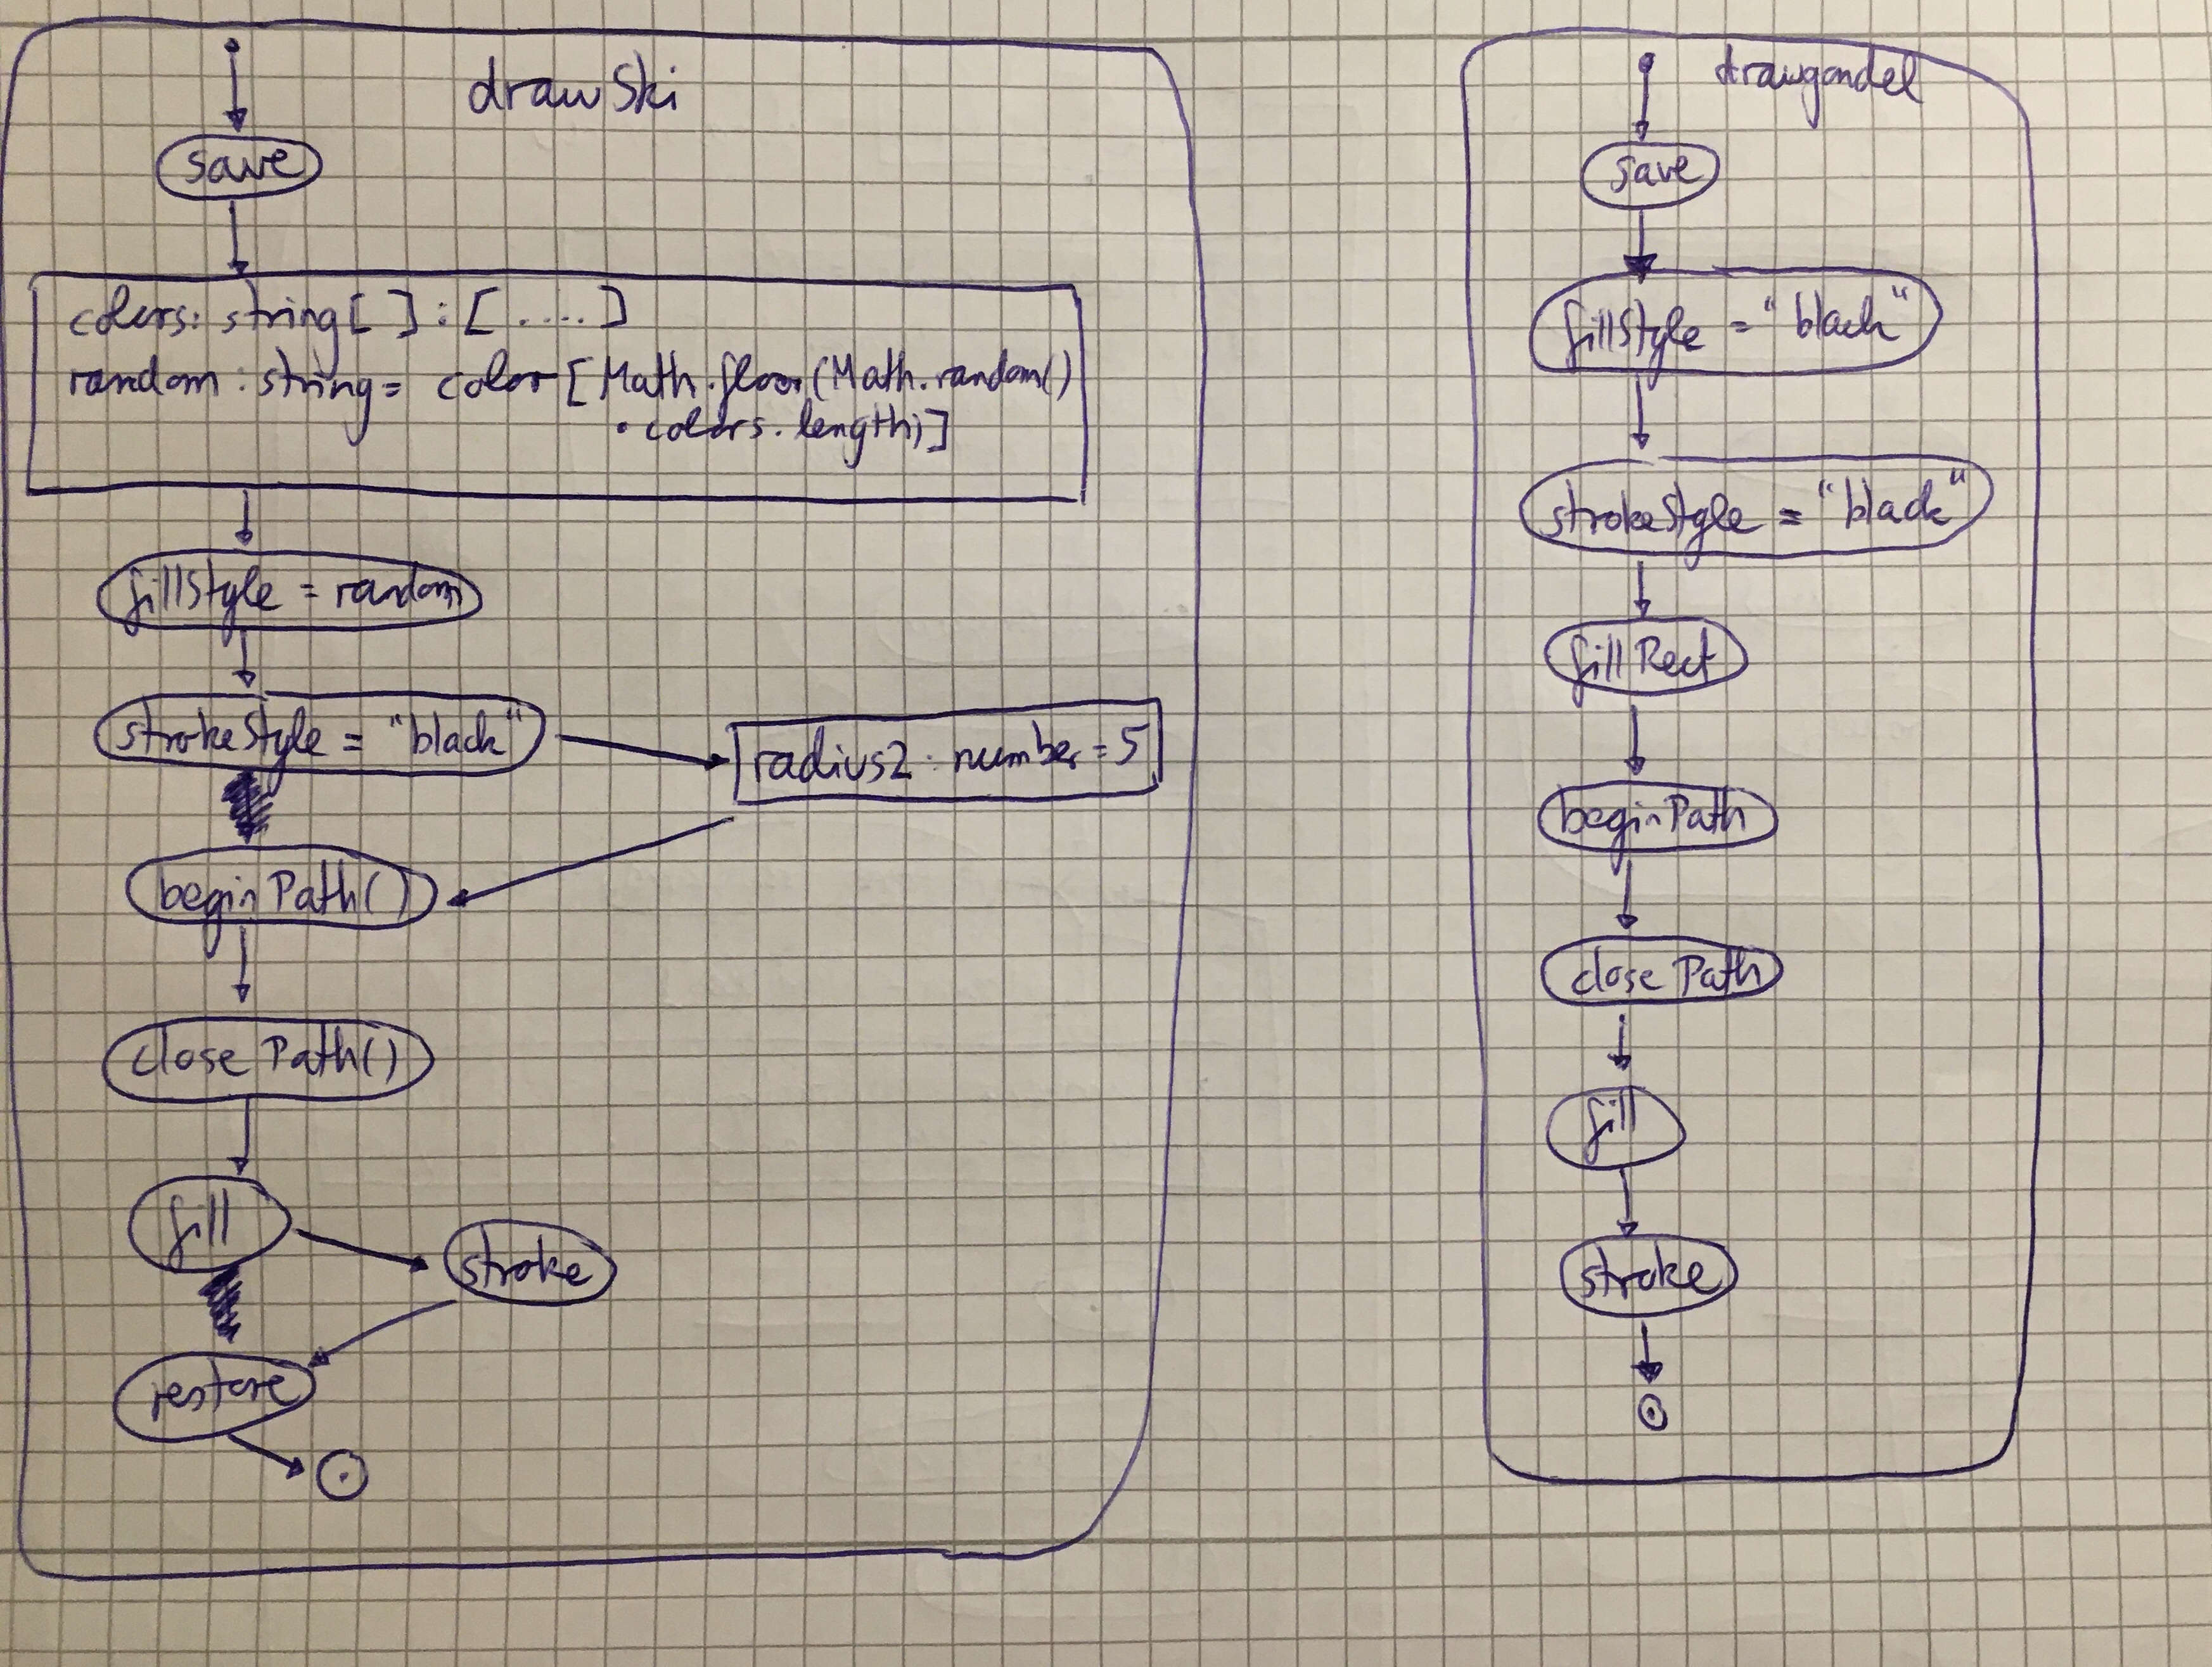 drawSki
save
colors: string[ ] : [ .... ]
random : string = color [Math.floor(Math.random()
• colors.length)]
fillStyle = random
strokeStyle = "black"
radius2 : number = 5
beginPath()
closePath()
fill
stroke
restore
drawgondel
save
fillStyle = "black"
strokeStyle = "black"
fillRect
beginPath
closePath
fill
stroke